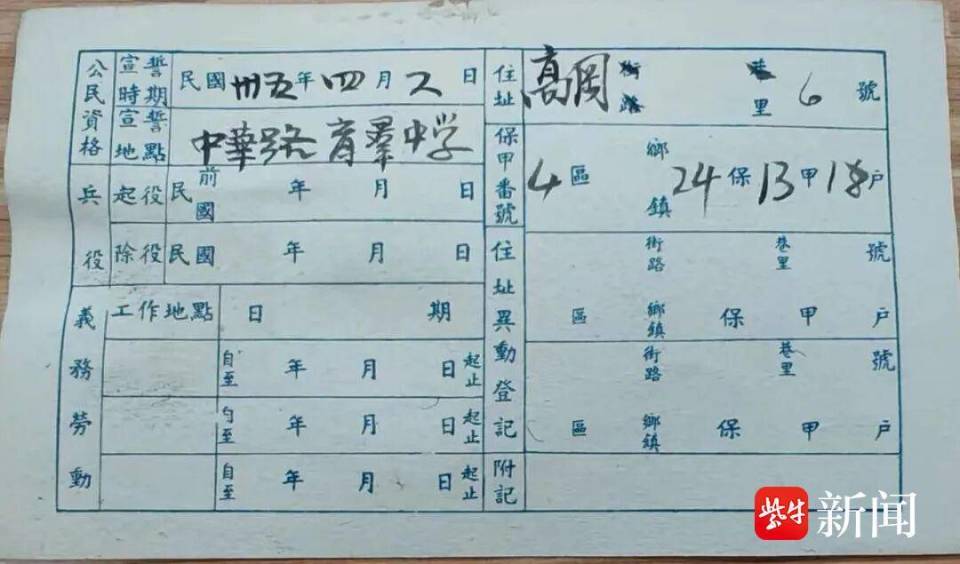 公民資格 宣誓時期 民國卅五年四月 日
宣誓地點 中華路育羣中学
兵役 起役 民前國 年 月 日
除役 民國 年 月 日
義務勞動 工作地點 日 期
自至 年 月 日 起止
自至 年 月 日 起止
自至 年 月 日 起止
住址 高岡 街路 巷里 6 號
保甲番號 4 區 鄉鎮 24 保 13 甲 18 戶
住址異動登記 街路 巷里 號
區 鄉鎮 保 甲 戶
街路 巷里 號
區 鄉鎮 保 甲 戶
附記
紫牛新闻